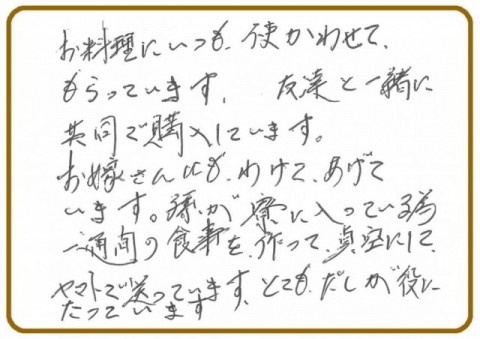 お料理にいつも、使かわせて、
もらっています、 友達と一緒に
共同で購入しています。
お嫁さんにも、わけて、あげて
います。孫が寮に入っている為
一週間の食事を、作って、真空にして、
ヤマトで送っています、とても、だしが役に
たっています